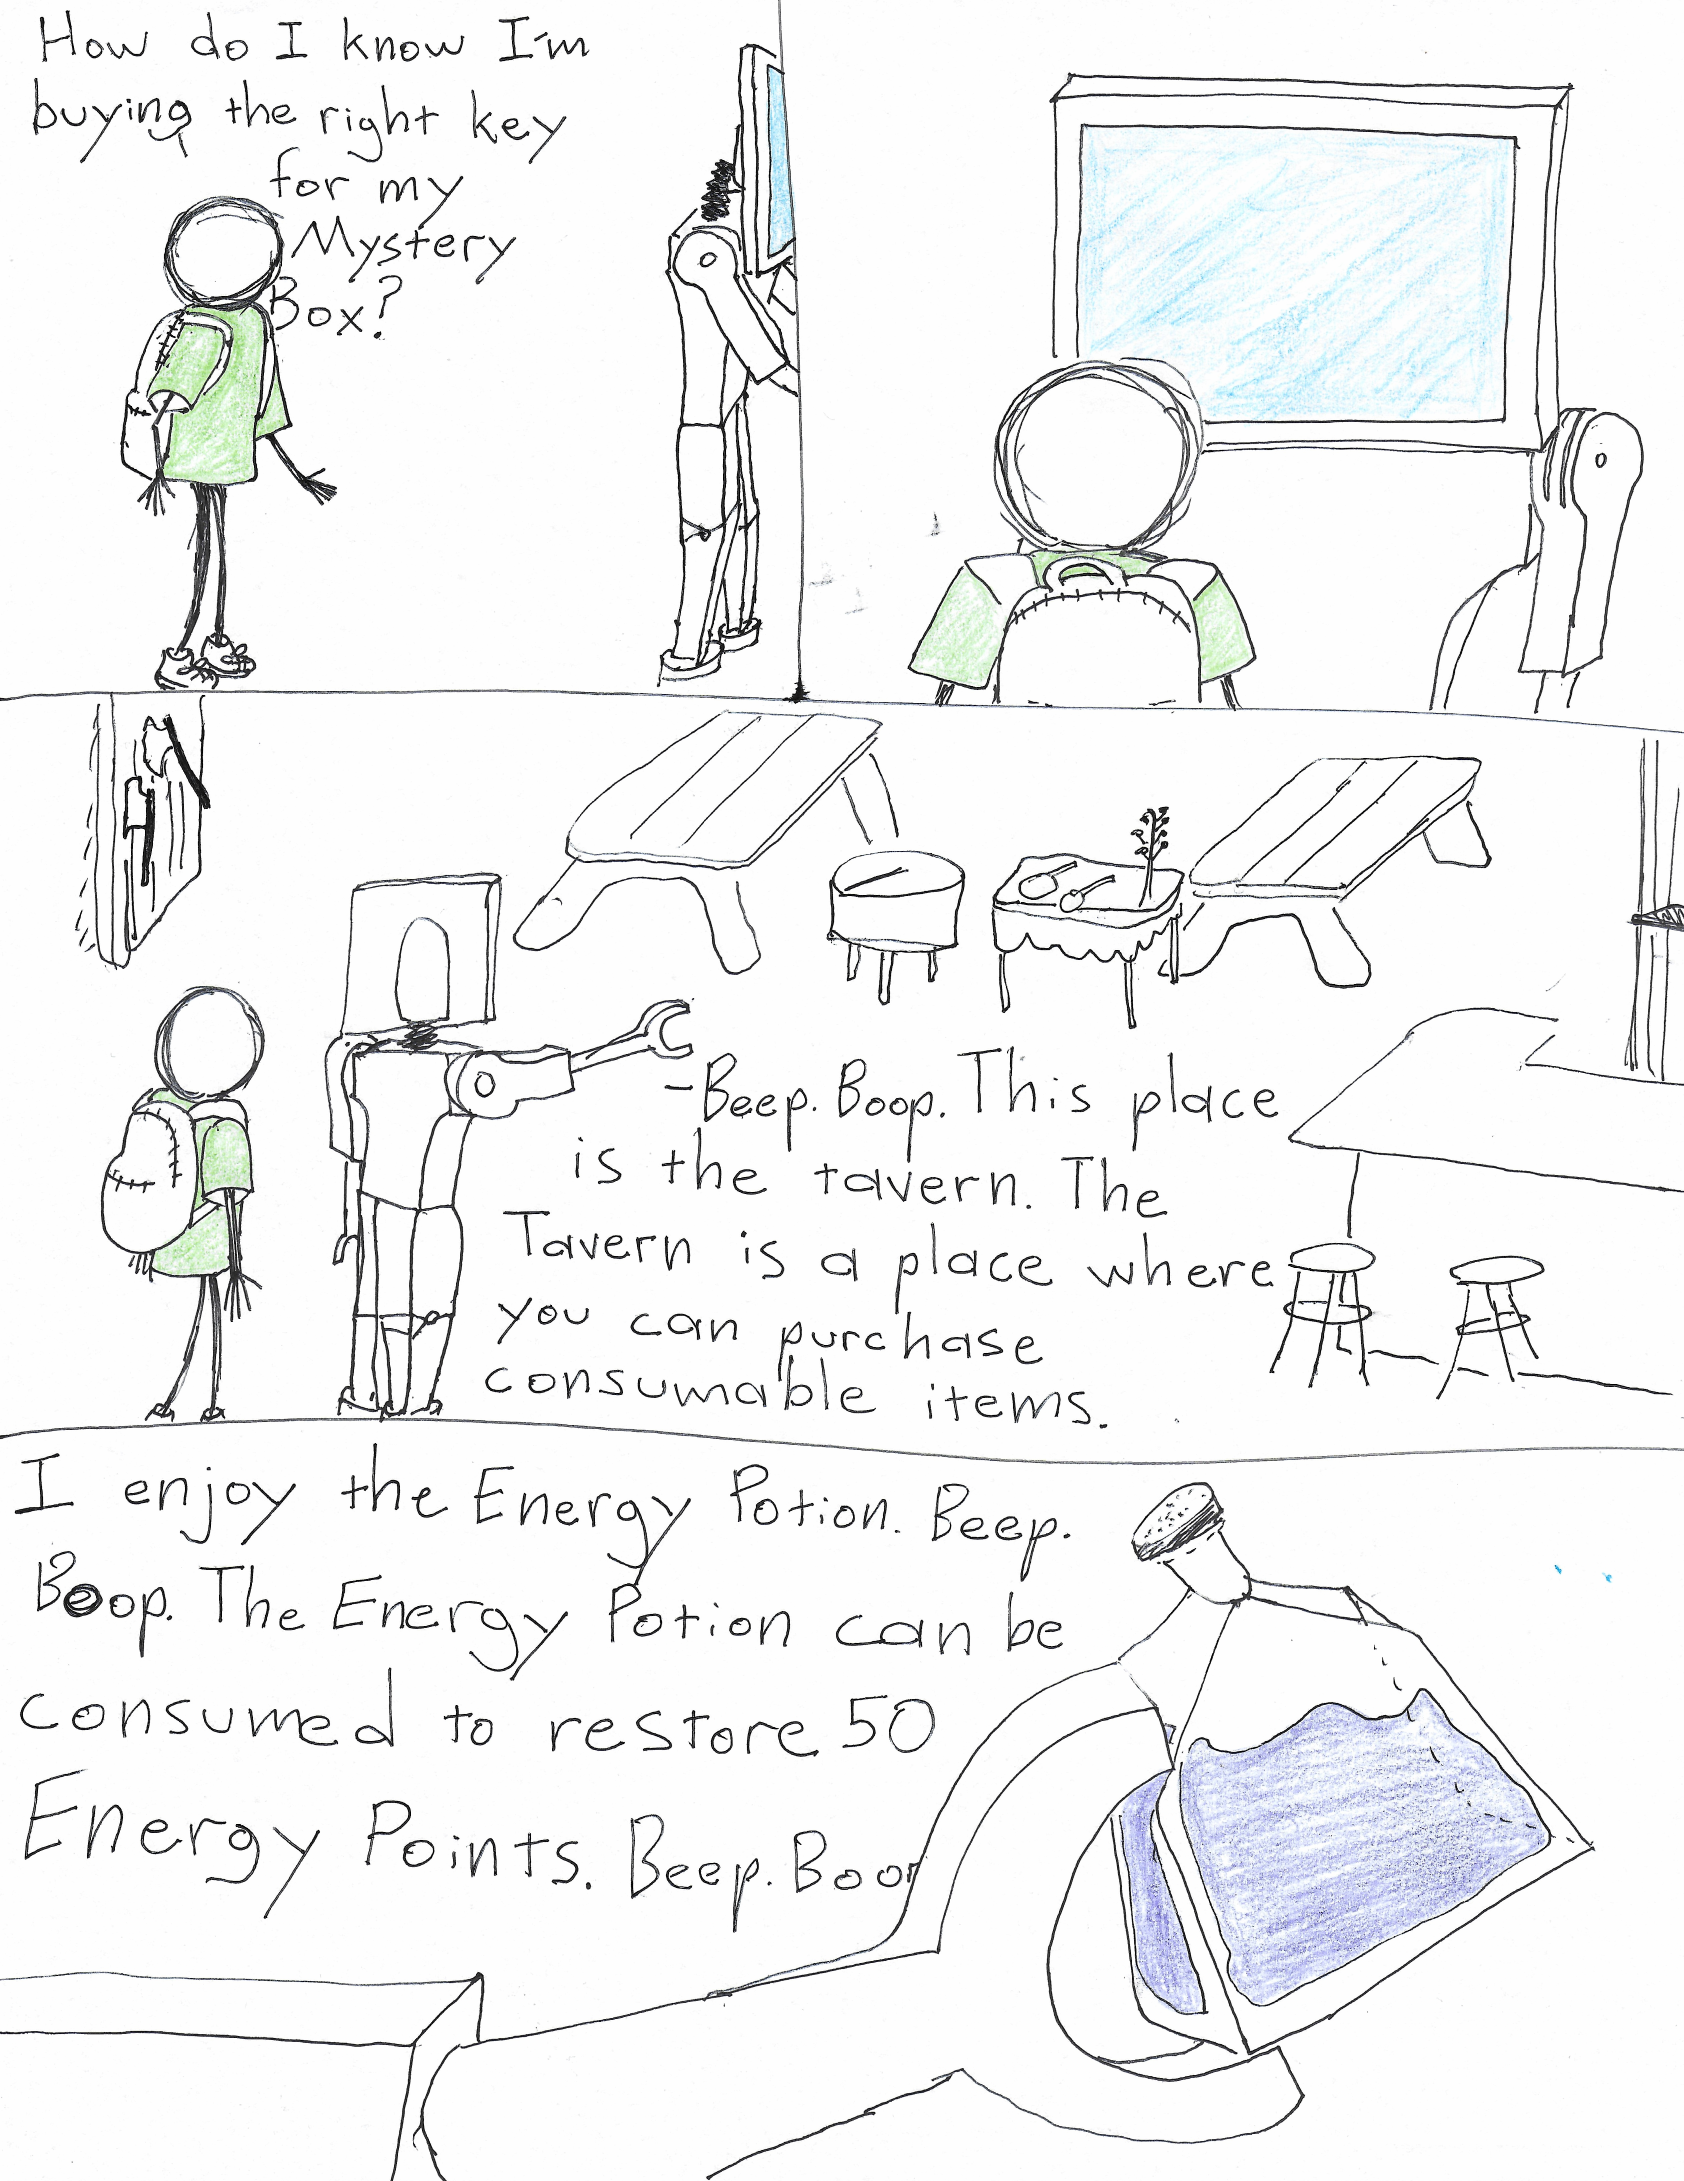 How do I know I'm
buying the right key
for my
Mystery
Box?
-Beep. Boop. This place
is the tavern. The
Tavern is a place where
you can purchase
consumable items.
I enjoy the Energy Potion. Beep.
Boop. The Energy Potion can be
consumed to restore 50
Energy Points. Beep. Boop